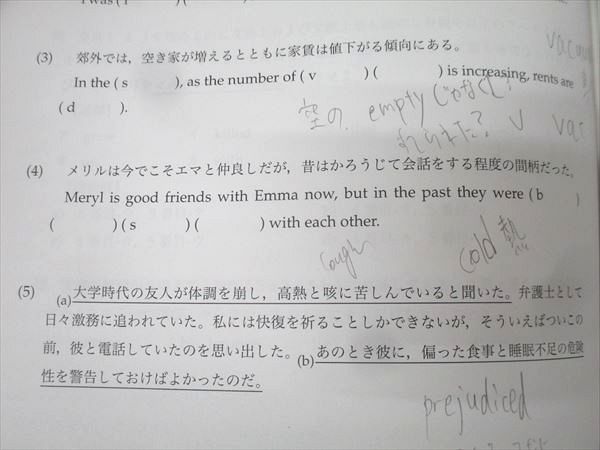 I was (I ) (
(3) 郊外では，空き家が増えるとともに家賃は値下がる傾向にある。
In the ( s ), as the number of ( v ) ( ) is increasing, rents are
( d ).
空の. empty じゃなくし?
v
(4) メリルは今でこそエマと仲良しだが，昔はかろうじて会話をする程度の間柄だった。
Meryl is good friends with Emma now, but in the past they were ( b )
( ) ( s ) ( ) with each other.
cough
cold 熱
(5) (a)大学時代の友人が体調を崩し，高熱と咳に苦しんでいると聞いた。弁護士として
日々激務に追われていた。私には快復を祈ることしかできないが，そういえばついこの
前，彼と電話していたのを思い出した。(b)あのとき彼に，偏った食事と睡眠不足の危険
性を警告しておけばよかったのだ。
prejudiced